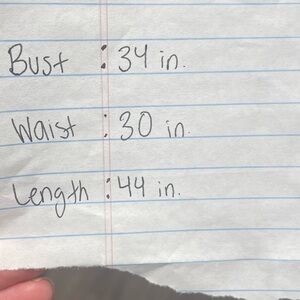 Bust : 34 in.
Waist : 30 in.
Length : 44 in.